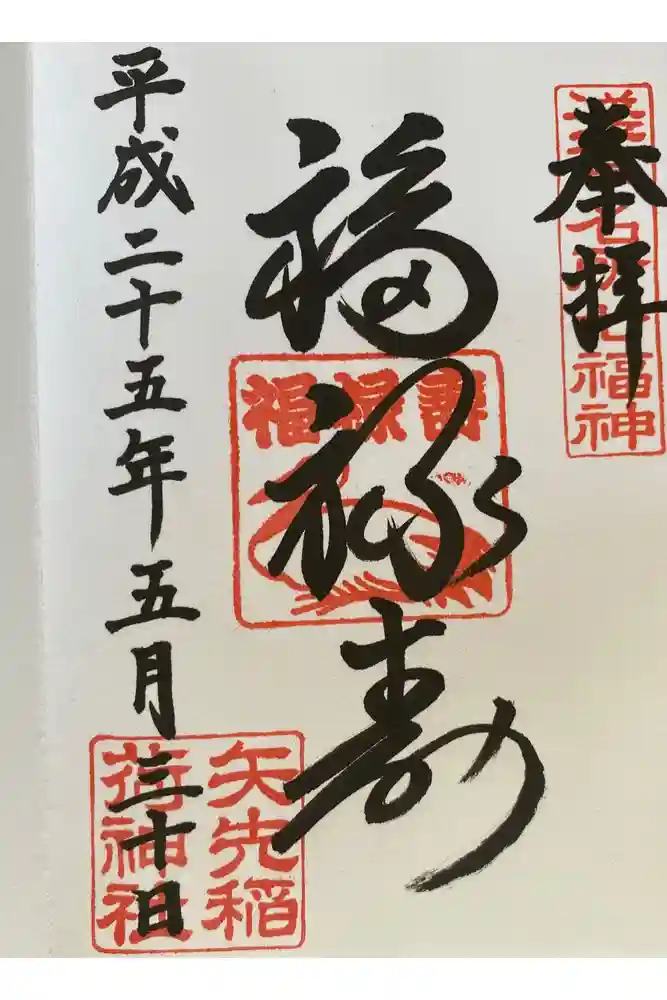 奉拝
浅草名所七福神
福禄寿
福禄壽
平成二十五年五月三十日
矢先稲
荷神社